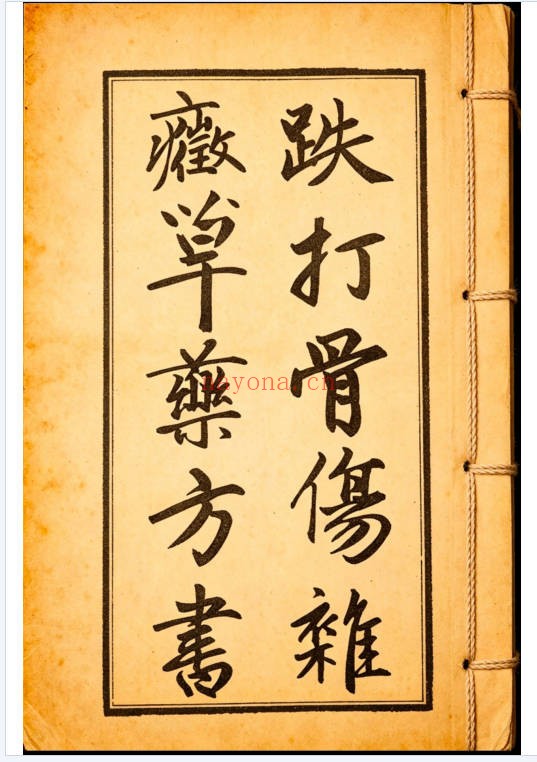 跌打骨傷雜
癥草藥方書
nayona.cn